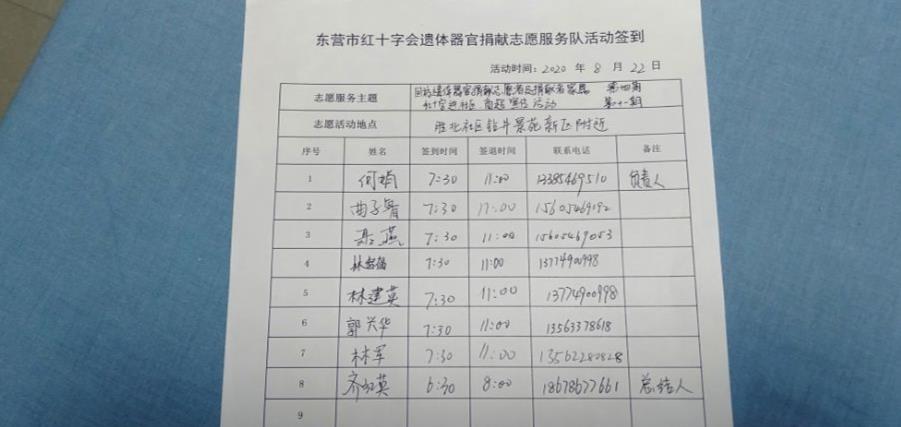 东营市红十字会遗体器官捐献志愿服务队活动签到
活动时间：2020 年 8 月 22 日
志愿服务主题 遗体器官捐献志愿者及捐献者家属 第四期
红十字进社区 商超 宣传 活动 第十一期
志愿活动地点 胜北社区钻井景苑新区附近
序号 姓名 签到时间 签退时间 联系电话 备注
1 何娟 7:30 11:00 13385469510 负责人
2 曲子智 7:30 11:00 15605469192
3 燕 7:30 11:00 15605469053
4 林 7:30 11:00 13774900998
5 林建英 7:30 11:00 13774900998
6 郭兴华 7:30 11:00 13563378618
7 林军 7:30 11:00 13562280828
8 齐红英 6:30 8:00 18678677661 总结人
9